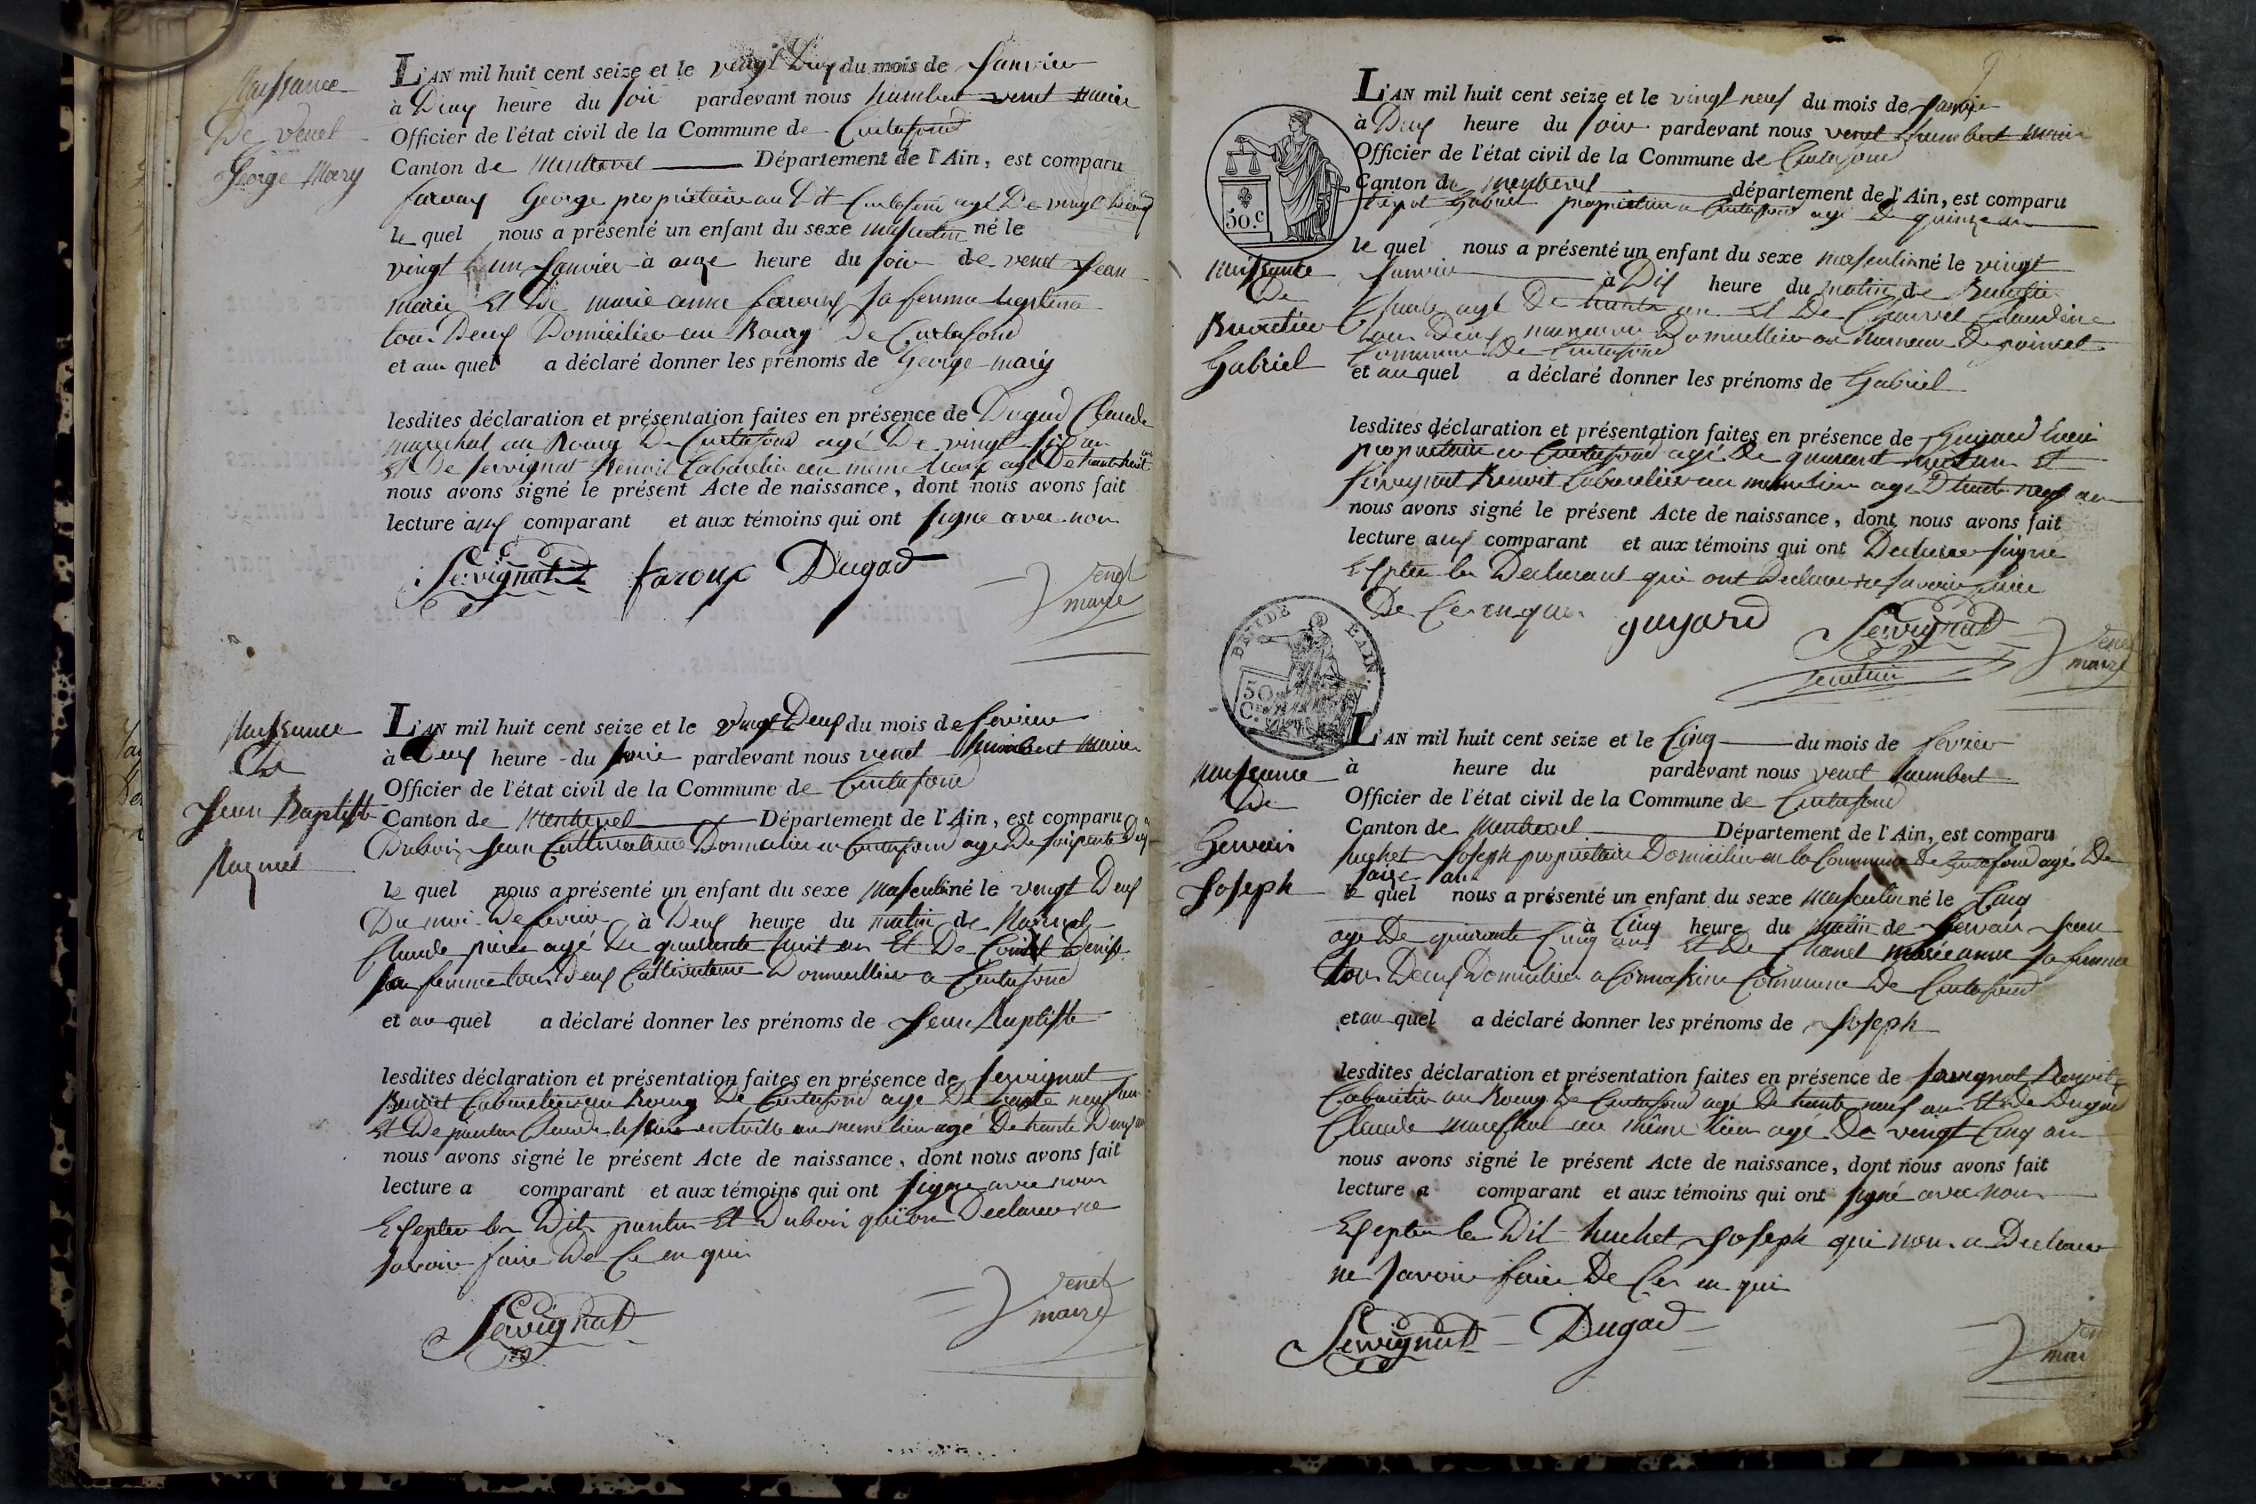 Naissance
De venet
George Mary
L'AN mil huit cent seize et le vingt Deux du mois de Janvier
à Deux heure du soir pardevant nous humbert venet maire
Officier de l'état civil de la Commune de Curtafond
Canton de Montrevel Département de l'Ain, est comparu
faroux George propriétaire au Dit Curtafond agé De vingt
le quel nous a présenté un enfant du sexe masculin né le
vingt un Janvier à onze heure du soir de venet Jean
marie Et De marie anne faroux sa femme
tous Deux Domicilier au Bourg De Curtafond
et au quel a déclaré donner les prénoms de George mary
lesdites déclaration et présentation faites en présence de Dugad Claude
marechal au Bourg De Curtafond agé De vingt six an
Et De servignat Benoit Cabaretier au meme lieux agé De trente huit an
nous avons signé le présent Acte de naissance, dont nous avons fait
lecture aux comparant et aux témoins qui ont signé avec nous
Servignat faroux Dugad venet
maire
Naissance
De
Jean Baptiste
L'AN mil huit cent seize et le vingt Deux du mois de fevrier
à Deux heure du soire pardevant nous venet humbert maire
Officier de l'état civil de la Commune de Curtafond
Canton de Montrevel Département de l'Ain, est comparu
Dubois Jean Cultivateur Domicilier a Curtafond agé De soixante
le quel nous a présenté un enfant du sexe masculin né le vingt Deux
Du moi De fevrier à Deux heure du matin de
Claude pierre agé De quarante huit an Et De Denise
sa femme tous Deux Cultivateur Domicillier a Curtafond
et au quel a déclaré donner les prénoms de Jean Baptiste
lesdites déclaration et présentation faites en présence de servignat
Benoit Cabaretier au Bourg De Curtafond age De trente neuf an
Et De Claude au meme lieu agé De trente Deux an
nous avons signé le présent Acte de naissance, dont nous avons fait
lecture a comparant et aux témoins qui ont signe avec nous
Excepter les Dits Et Dubois qui on Declarer ne
savoir faire De Ce en quis
Servignat venet
maire
L'AN mil huit cent seize et le vingt neuf du mois de Janvier
à Deux heure du soir pardevant nous venet humbert maire
Officier de l'état civil de la Commune de Curtafond
Canton de Montrevel département de l'Ain, est comparu
Gabriel propriétaire a Curtafond agé De quinze an
50.c
le quel nous a présenté un enfant du sexe masculin né le vingt
Naissance
De
Gabriel
Janvier à Dix heure du matin de
Claude agé De trente an Et De Claudine
tous Deux Domicillier au hameau De
Commune De Curtafond
et au quel a déclaré donner les prénoms de Gabriel
lesdites déclaration et présentation faites en présence de Guyard
propriétaire a Curtafond agé De quarant an Et
servignat Benoit Cabaretier au meme lieu agé De trente neuf an
nous avons signé le présent Acte de naissance, dont nous avons fait
lecture aux comparant et aux témoins qui ont Declarer signe
Excepter le Declarant qui ont Declarer ne savoir faire
De Ce enquis guyard Servignat venet
maire
50
C.
L'AN mil huit cent seize et le Cinq du mois de fevrier
Naissance
De
Gervais
Joseph
à heure du pardevant nous venet humbert
Officier de l'état civil de la Commune de Curtafond
Canton de Montrevel Département de l'Ain, est comparu
huchet Joseph propriétaire Domicilier en la Commune de Curtafond agée De
an
le quel nous a présenté un enfant du sexe masculin né le Cinq
à Cinq heure du matin de Gervais Jean
age De quarante Cinq an Et De marie anne sa femme
tous Deux Domicilier a Commune De Curtafond
et au quel a déclaré donner les prénoms de Joseph
lesdites déclaration et présentation faites en présence de servignat Benoit
Cabaretier au Bourg De Curtafond agé De trente neuf an Et De Dugad
Claude marechal au même lieu age De vingt Cinq an
nous avons signé le présent Acte de naissance, dont nous avons fait
lecture a comparant et aux témoins qui ont signé avec nous
Excepter le Dit huchet Joseph qui nous a Declarer
ne savoir faire De Ces en quis
Servignat Dugad